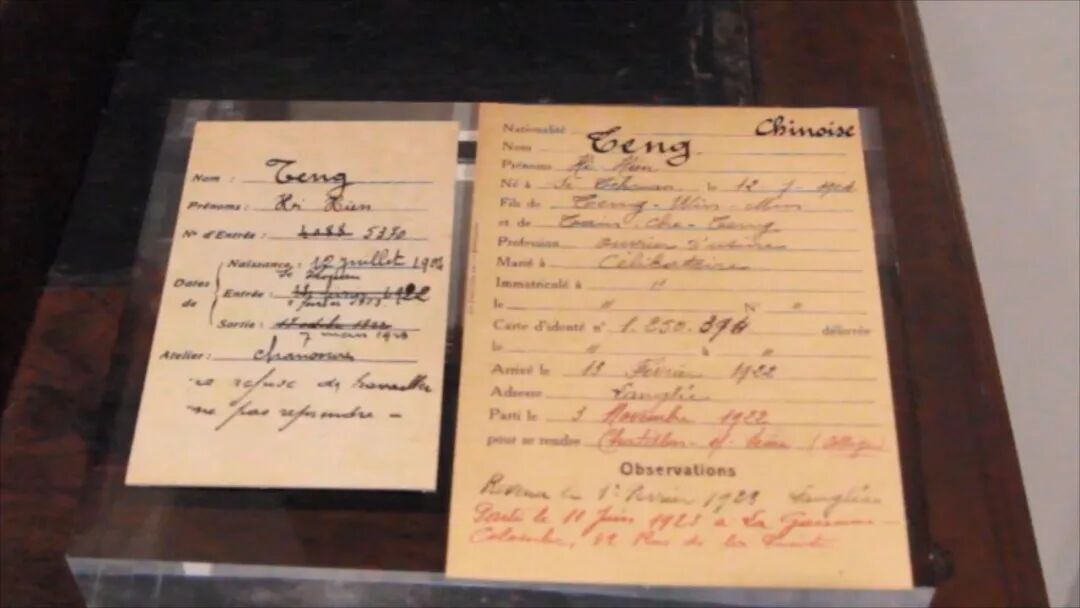 Nom : Teng
Prénoms : Hi Hien
N° d'Entrée : 4088 5370
Dates de
Naissance : 12 juillet 1904
Entrée : 1922
Sortie :
7 mars 1923
Atelier : Chaussure
a refusé de travailler
ne pas reprendre –
Nationalité Chinoise
Nom Teng
Prénoms Hi Hien
Né à Se Tchuan le 12 - 7 - 1904
Fils de Teng - Win - Min
et de Tain - Che - Teng
Profession ouvrier d'usine
Marié à Célibataire
Immatriculé à "
le " N° "
Carte d'identité n° 1.250.394 délivrée
le " à "
Arrivé le 13 Février 1922
Adresse Langlée
Parti le 3 Novembre 1922
pour se rendre Chatillon - s/ - Seine (Collège)
Observations
Revenu le 1er Février 1923 Langlée
Parti le 11 Juin 1923 à La Garenne -
Colombes, Rue de la Pointe